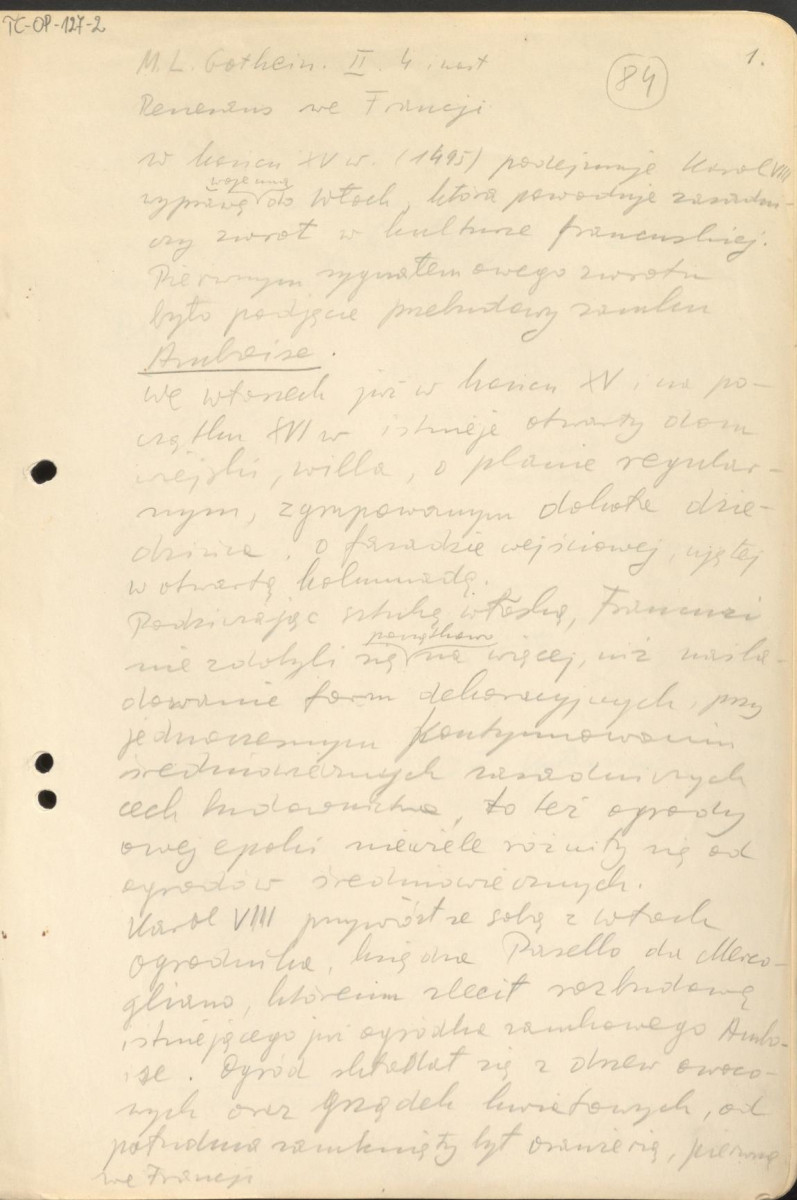 TC-OP-127-2
1.
M. L. Gothein. II. 4. i nast
84
Renesans we Francji
w końcu XV w. (1495) podejmuje Karol VIII
wojenną
wyprawę do Włoch, która powoduje zasadni-
czy zwrot w kulturze francuskiej.
Pierwszym sygnałem owego zwrotu
było podjęcie przebudowy zamku
Amboise.
We Włoszech już w końcu XV i na po-
czątku XVI w istnieje otwarty dom
wiejski, willa, o planie regular-
nym, zgrupowanym dokoła dzie-
dzińca, o fasadzie wejściowej, ujętej
w otwartą kolumnadę.
Podziwiając sztukę włoską, Francuzi
początkowo
nie zdobyli się na więcej, niż naśla-
dowanie form dekoracyjnych, przy
jednoczesnym kontynuowaniu
średniowiecznych zasadniczych
cech budownictwa, to też ogrody
owej epoki niewiele różniły się od
ogrodów średniowiecznych.
Karol VIII przywiózł ze sobą z Włoch
ogrodnika, księdza Pasello da Merco-
gliano, któremu zlecił rozbudowę
istniejącego już ogródka zamkowego Ambo-
ise. Ogród składał się z drzew owoco-
wych oraz grządek kwiatowych, od
południa zamknięty był oranżerią, pierwszą
we Francji